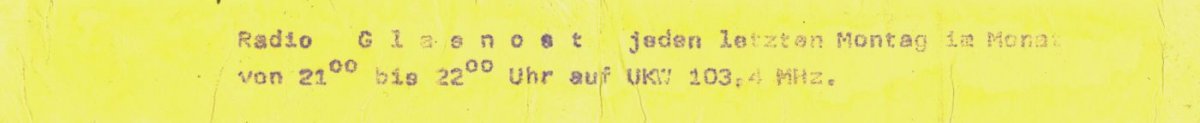 Radio G l a s n o s t jeden letzten Montag im Monat
von 21⁰⁰ bis 22⁰⁰ Uhr auf UKW 103,4 MHz.